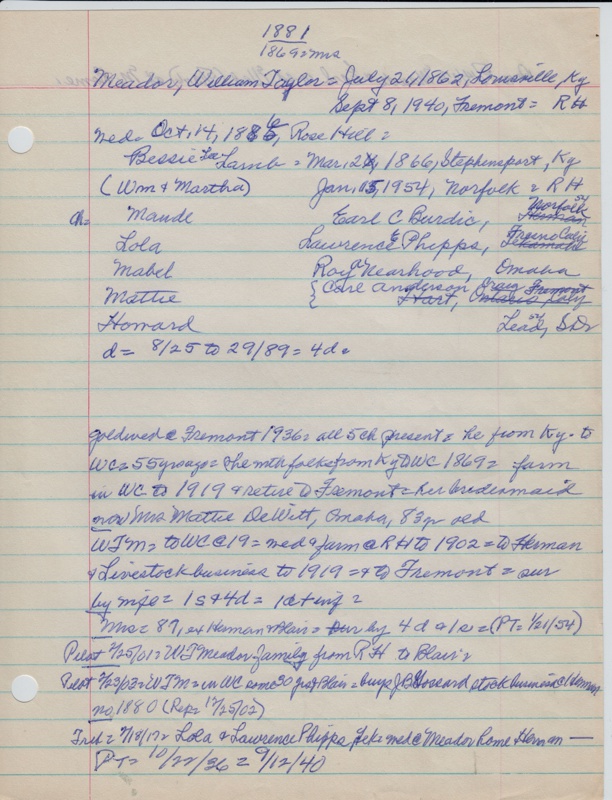 1881
1869 = mrs
Meador, William Taylor = July 24 1862, Louisville, Ky
Sept 8, 1940, Fremont = RH
wed = Oct, 14, 1886, Rose Hill =
Bessie Lee Lamb = Mar, 24, 1866, Stephensport, Ky
(Wm & Martha) Jan, 15, 1954, Norfolk = RH
ch = Maude Earl C Burdic, Norfolk
Lola Lawrence E Phipps, Fresno Calif
Mabel Roy A Nearhood, Omaha
Mattie { Carl Anderson Craig Fremont
Hart, Ontario, Calif
Howard Lead, S.D.
d = 8/25 to 29/89 = 4 da
goldwed @ Fremont 1936 = all 5 ch present = he from Ky. to
WC = 55 yrs ago = she mth folks from Ky to WC 1869 = farm
in WC to 1919 & retire to Fremont = her bridesmaid
now Mrs Mattie DeWitt, Omaha, 83 yr old
WTM = to WC @ 19 = wed & farm @ RH to 1902 = to Herman
& Livestock business to 1919 = & to Fremont = sur
by wife = 1 s & 4 d =
Mrs = 87, ex Herman & Blair = sur by 4 d & 1 s = (PT = 1/21/54)
Pilot 2/25/01 = WT Meador family from RH to Blair =
Pilot = WTM = in WC some 20 yrs & Blair = buys stock business @ Herman
no 1880 (Rep = 11/25/02)
Trib = Lola & Lawrence Phipps Teka wed @ Meador home Herman —
PT = 10/22/36 = 9/12/40